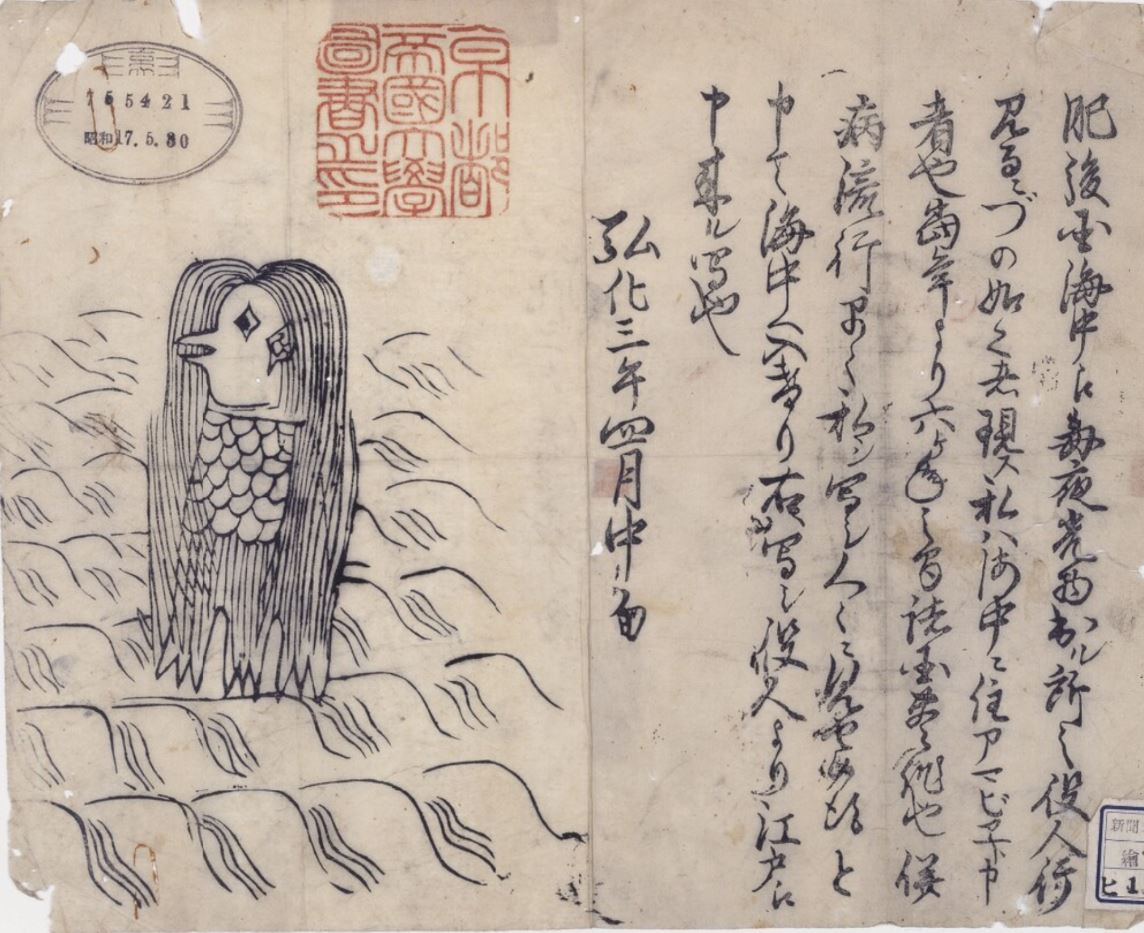 肥後国海中え毎夜光物出ル所之役人行
見るニづの如く者現ス私ハ海中ニ住アマビヱト申
者也当年より六ヶ年之間諸国豊作也併
病流行早々私ヲ写シ人々ニ見セ候得と
申て海中へ入けり右写シ役人より江戸え
申来ル写也
弘化三年四月中旬
京都
帝國大學
圖書之印
755421
昭和17.5.30
新聞
ヒ1